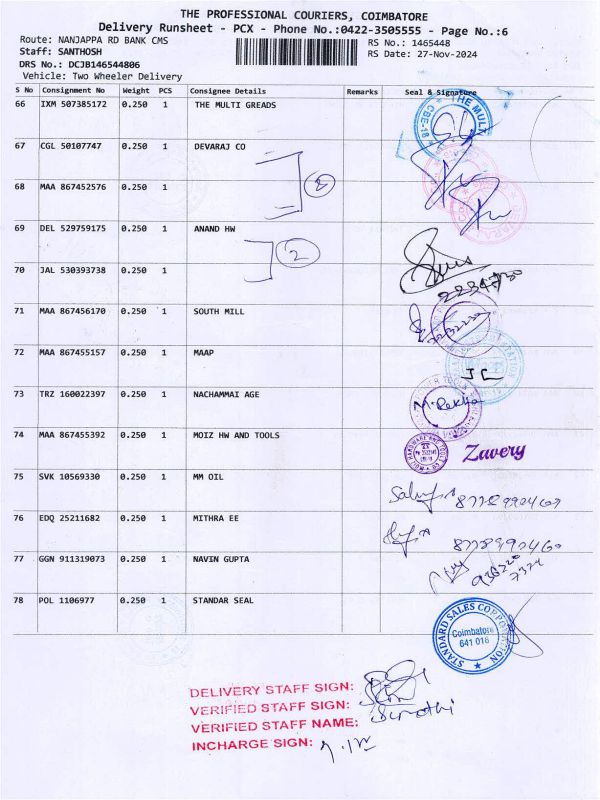 THE PROFESSIONAL COURIERS, COIMBATORE
Delivery Runsheet - PCX - Phone No.:0422-3505555 - Page No.:6
Route: NANJAPPA RD BANK CMS
RS No.: 1465448
Staff: SANTHOSH
RS Date: 27-Nov-2024
DRS No.: DCJB146544806
Vehicle: Two Wheeler Delivery
S No Consignment No Weight PCS Consignee Details Remarks Seal & Signature
66 IXM 507385172 0.250 1 THE MULTI GREADS
THE MULT
CBE-18
67 CGL 50107747 0.250 1 DEVARAJ CO
68 MAA 867452576 0.250 1
69 DEL 529759175 0.250 1 ANAND HW
2
70 JAL 530393738 0.250 1
71 MAA 867456170 0.250 1 SOUTH MILL
72 MAA 867455157 0.250 1 MAAP
73 TRZ 160022397 0.250 1 NACHAMMAI AGE
M. Rekha
74 MAA 867455392 0.250 1 MOIZ HW AND TOOLS
Zavery
75 SVK 10569330 0.250 1 MM OIL
76 EDQ 25211682 0.250 1 MITHRA EE
77 GGN 911319073 0.250 1 NAVIN GUPTA
78 POL 1106977 0.250 1 STANDAR SEAL
STANDARD SALES CORPORATION
Coimbatore
641 018
DELIVERY STAFF SIGN:
VERIFIED STAFF SIGN:
VERIFIED STAFF NAME:
INCHARGE SIGN: